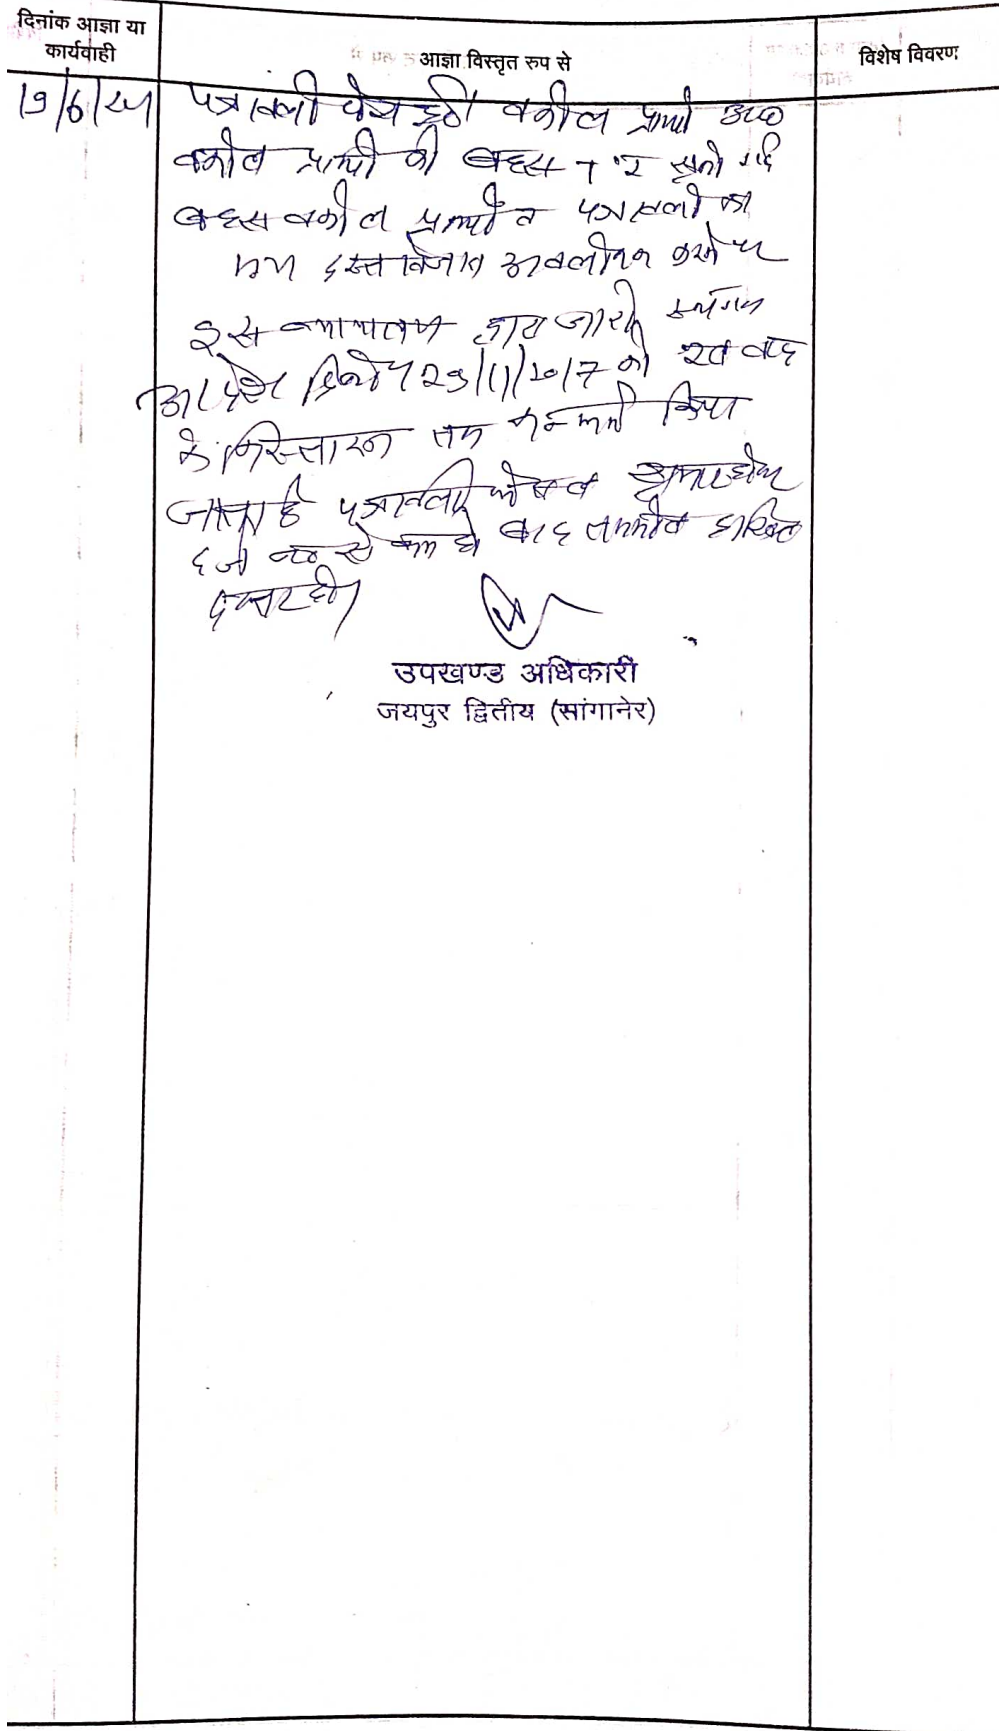 दिनांक आज्ञा या
कार्यवाही
आज्ञा विस्तृत रुप से
विशेष विवरण
19/6/24
पत्रावली पेश हुई। वकील प्रार्थी उप०
वकील प्रार्थी की बहस सुनी गई
बहस वकील प्रार्थी व पत्रावली का
मय दस्तावेजात अवलोकन करने पर
इस न्यायालय द्वारा जारी स्थगन
आदेश दिनांक 29/11/2017 को वाद
के निस्तारण तक किया
जाता है पत्रावली फैसल शुमार होकर
दर्ज नं० से कम हो बाद तकमील दाखिल
दफ्तर हो।
उपखण्ड अधिकारी
जयपुर द्वितीय (सांगानेर)